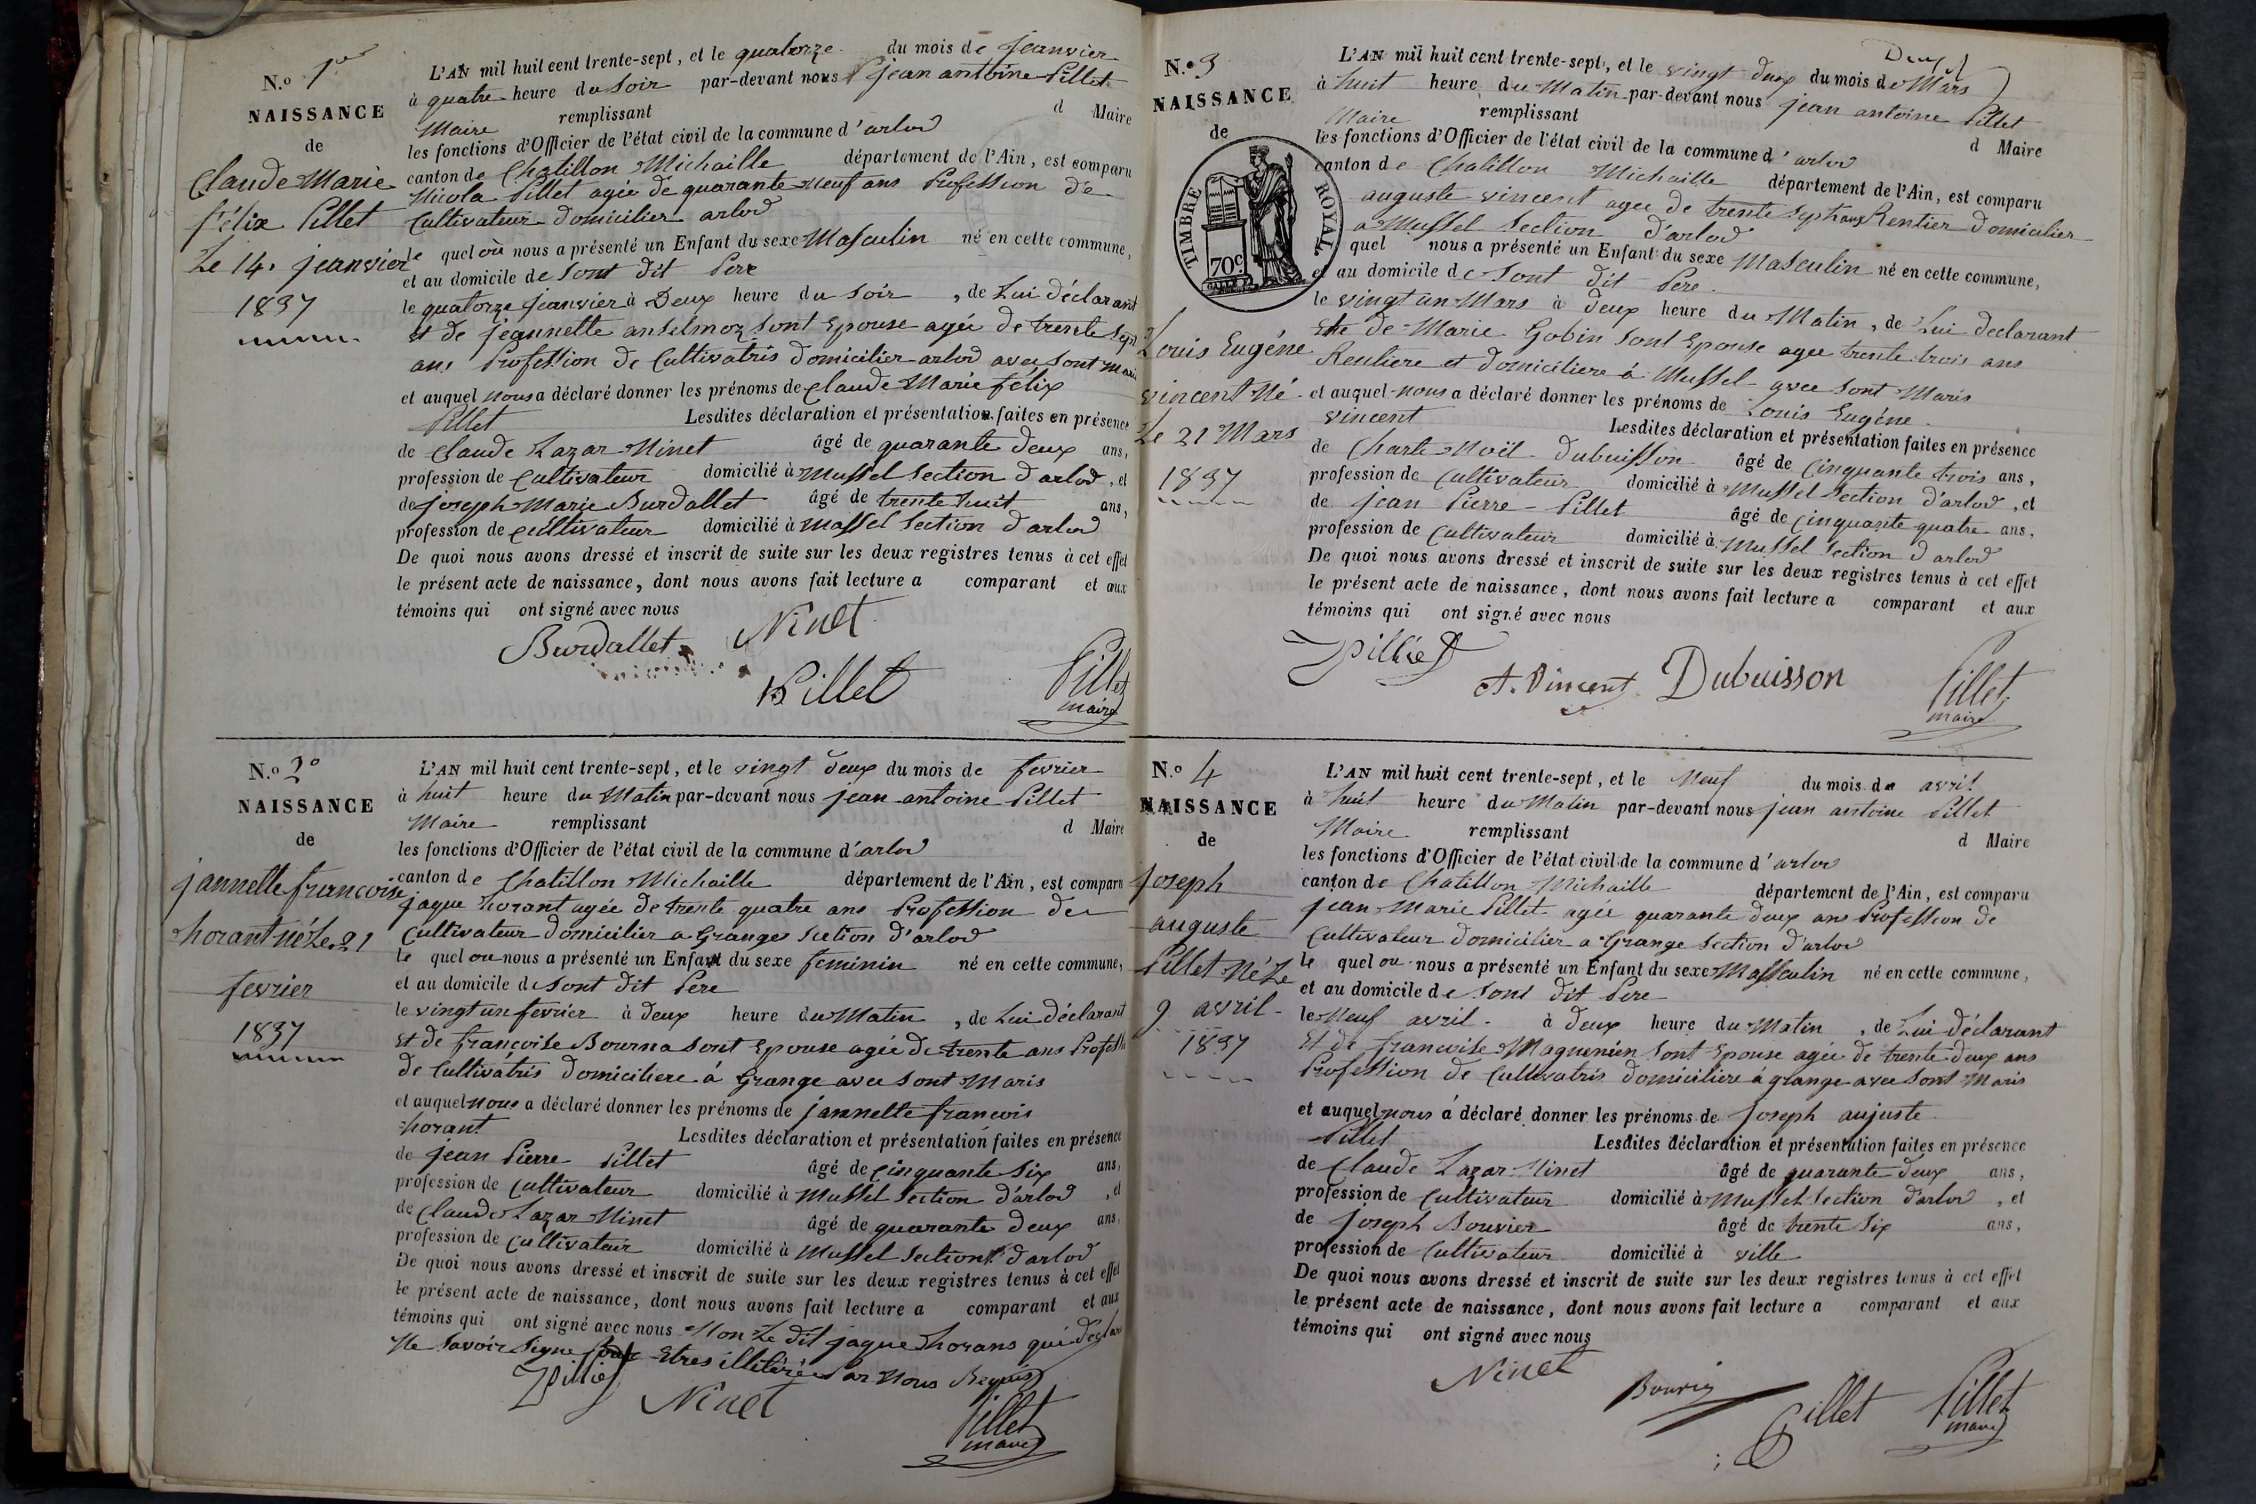 N.o 1er
NAISSANCE
de
Claude Marie
félix Pillet
Le 14. jeanvier
1837
L'AN mil huit cent trente-sept, et le quatorze du mois de jeanvier
à quatre heure du Soir par-devant nous jean antoine Pillet
Maire remplissant d Maire
les fonctions d'Officier de l'état civil de la commune d'arlod
canton de Chatillon Michaille département de l'Ain, est comparu
Nicola Pillet agée de quarante neuf ans Profession de
Cultivateur domicilier arlod
le quel où nous a présenté un Enfant du sexe Masculin né en cette commune,
et au domicile de Sont dit Pere
le quatorze jeanvier à Deux heure du Soir, de Lui déclarant
Et de jeannette anselmoz Sont Epouse agée de trente Sept
ans Profession de Cultivatris domicilier arlod avec Sont mari
et auquel nous a déclaré donner les prénoms de Claude Marie félix
Pillet Lesdites déclaration et présentation faites en présence
de Claude Lazar Ninet âgé de quarante deux ans,
profession de Cultivateur domicilié à Mussel Section d'arlod, et
de joseph Marie Burdallet âgé de trente huit ans,
profession de Cultivateur domicilié à Mussel Section d'arlod
De quoi nous avons dressé et inscrit de suite sur les deux registres tenus à cet effet
le présent acte de naissance, dont nous avons fait lecture a comparant et aux
témoins qui ont signé avec nous
Burdallet Ninet
Pillet Pillet
maire
N.o 2o
NAISSANCE
de
jannette francoise
horant né Le 21
fevrier
1837
L'AN mil huit cent trente-sept, et le vingt deux du mois de fevrier
à huit heure du Matin par-devant nous jean antoine Pillet
Maire remplissant d Maire
les fonctions d'Officier de l'état civil de la commune d'arlod
canton de Chatillon Michaille département de l'Ain, est comparu
jaque horant agée de trente quatre ans Profession de
Cultivateur domicilier a Grange Section d'arlod
le quel ou nous a présenté un Enfant du sexe feminin né en cette commune,
et au domicile de Sont dit Pere
le vingt un fevrier à deux heure du Matin, de Lui déclarant
Et de francoise Bourna Sont Epouse agée de trente ans Profess
de Cultivatris domiciliere á Grange avec Sont Maris
et auquel nous a déclaré donner les prénoms de jannette francois
horant Lesdites déclaration et présentation faites en présence
de jean Pierre Pillet âgé de Cinquante Six ans,
profession de Cultivateur domicilié à Mussel Section d'arlod, et
de Claude Lazar Ninet âgé de quarante deux ans,
profession de Cultivateur domicilié à Mussel Section d'arlod
De quoi nous avons dressé et inscrit de suite sur les deux registres tenus à cet effet
le présent acte de naissance, dont nous avons fait lecture a comparant et aux
témoins qui ont signé avec nous Non Le dit jaque horans qui
Ne Savoir Signe Etres illitéré Par Nous Requis
Ninet
Pillet
maire
N.o 3
NAISSANCE
de
TIMBRE ROYAL
70c
Louis Eugéne
vincent Né
Le 21 Mars
1837
Deux
L'AN mil huit cent trente-sept, et le vingt deux du mois de Mars
à huit heure du Matin par-devant nous jean antoine Pillet
Maire remplissant d Maire
les fonctions d'Officier de l'état civil de la commune d'arlod
canton de Chatillon Michaille département de l'Ain, est comparu
auguste vincent agée de trente Sept ans Rentier Domicilier
a Mussel Section d'arlod
quel nous a présenté un Enfant du sexe Masculin né en cette commune,
et au domicile de Sont dit Pere
le vingt un Mars à deux heure du Matin, de Lui declarant
Et de Marie Gobin Sont Epouse agee trente trois ans
Rentiere et domiciliere á Mussel avec Sont Maris
et auquel nous a déclaré donner les prénoms de Louis Eugéne
vincent Lesdites déclaration et présentation faites en présence
de Charle Noël Dubuisson âgé de Cinquante trois ans,
profession de Cultivateur domicilié à Mussel Section d'arlod, et
de jean Pierre Pillet âgé de Cinquante quatre ans,
profession de Cultivateur domicilié à Mussel Section d'arlod
De quoi nous avons dressé et inscrit de suite sur les deux registres tenus à cet effet
le présent acte de naissance, dont nous avons fait lecture a comparant et aux
témoins qui ont signé avec nous
A. Vincent Dubuisson Pillet
maire
N.o 4
NAISSANCE
de
joseph
auguste
Pillet Né Le
9 avril
1837
L'AN mil huit cent trente-sept, et le Neuf du mois de avril
à huit heure du Matin par-devant nous jean antoine Pillet
Maire remplissant d Maire
les fonctions d'Officier de l'état civil de la commune d'arlod
canton de Chatillon Michaille département de l'Ain, est comparu
jean Marie Pillet agée quarante deux ans Profession de
Cultivateur domicilier a Grange Section d'arlod
le quel ou nous a présenté un Enfant du sexe Massculin né en cette commune,
et au domicile de Sont dit Pere
le Neuf avril à deux heure du Matin, de Lui déclarant
Et de francoise Magnenien Sont Epouse agée de trente deux ans
Profession de Cultivatris domiciliere á grange avec Sont Maris
et auquel nous á déclaré donner les prénoms de joseph aujuste
Pillet Lesdites déclaration et présentation faites en présence
de Claude Lazar Ninet âgé de quarante deux ans,
profession de Cultivateur domicilié à Mussel Section d'arlod, et
de joseph Bouvier âgé de trente Six ans,
profession de Cultivateur domicilié à ville
De quoi nous avons dressé et inscrit de suite sur les deux registres tenus à cet effet
le présent acte de naissance, dont nous avons fait lecture a comparant et aux
témoins qui ont signé avec nous
Ninet
Pillet Pillet
maire